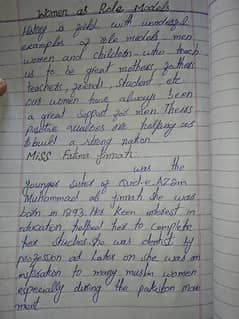 Women as Role Models
History is field with wonderful
examples of role models men
women and children who teach
us to be great mothers, fathers
teachers, friends, Student, etc
our women have always been
a great support for men. Theirs
positive qualities are helping us
to build a strong nation
Miss Fatima Jinnah:
was the
younger sister of Quid-e-AZam
Muhammad ali Jinnah she was
born in 1893. Her Keen interest in
education, helped her to complete
her studies. She was dentist by
profession ad later on she was an
inspiration to many muslim women
especially during the pakistan mov
ment